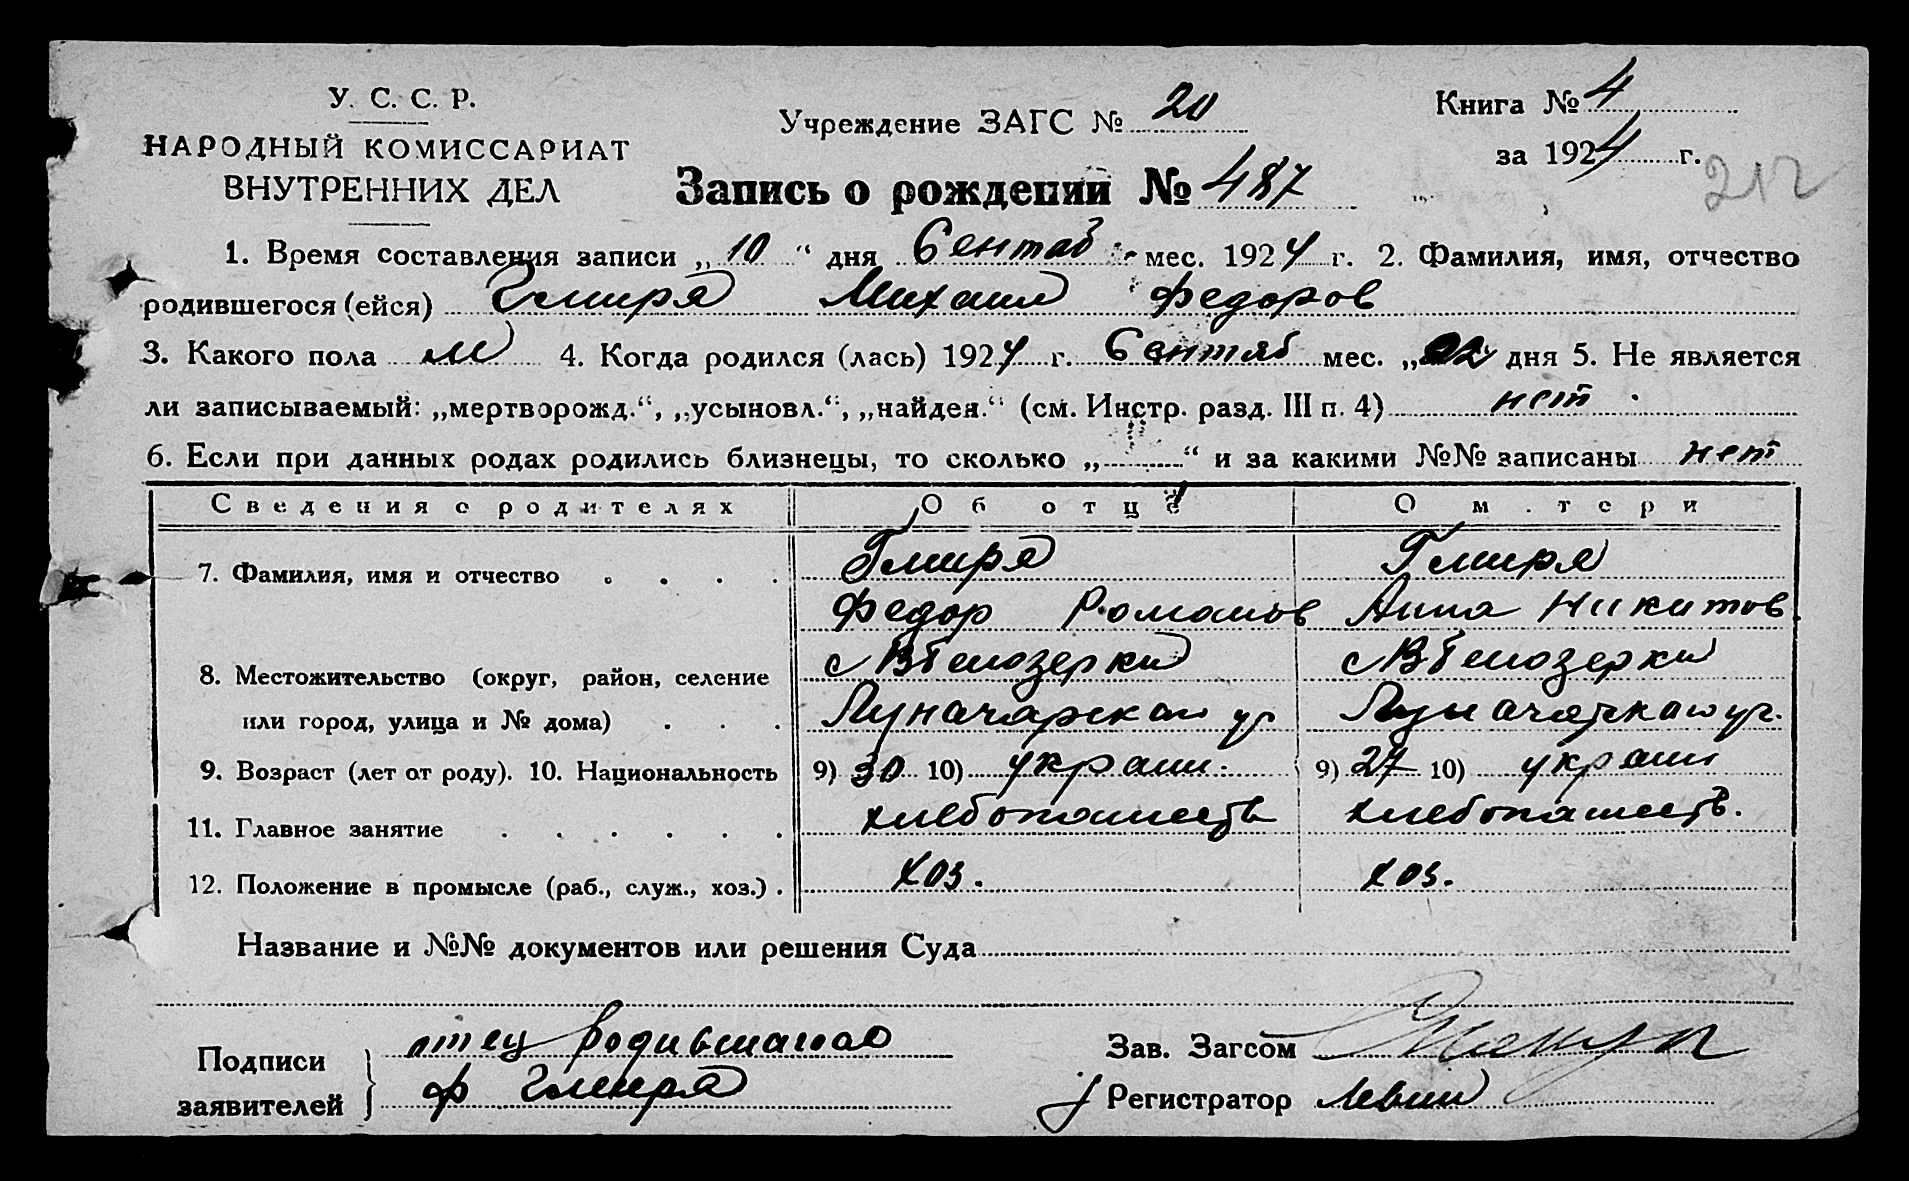 У. С. С. Р.
НАРОДНЫЙ КОМИССАРИАТ
ВНУТРЕННИХ ДЕЛ
Учреждение ЗАГС № 20
Книга № 4
за 1924 г.
212
Запись о рождении № 487
1. Время составления записи „10“ дня Сентяб мес. 1924 г. 2. Фамилия, имя, отчество
родившегося (ейся) Гмиря Михаил Федоров
3. Какого пола м 4. Когда родился (лась) 1924 г. Сентяб мес. „ дня 5. Не является
ли записываемый: „мертворожд.“, „усыновл.“, „найден.“ (см. Инстр. разд. III п. 4) нет
6. Если при данных родах родились близнецы, то сколько „ “ и за какими №№ записаны нет
Сведения о родителях Об отце О м.тери
7. Фамилия, имя и отчество Гмиря Гмиря
Федор Романов Анна Никитов
8. Местожительство (округ, район, селение с Белозерки с Белозерки
или город, улица и № дома) Луначарская ул Луначарская ул.
9. Возраст (лет от роду). 10. Национальность 9) 30 10) украин. 9) 27 10) украин
11. Главное занятие хлебопашеств хлебопашеств.
12. Положение в промысле (раб., служ., хоз.) хоз. хоз.
Название и №№ документов или решения Суда
Подписи заявителей отец
ф Гмиря
Зав. Загсом
Регистратор Левин